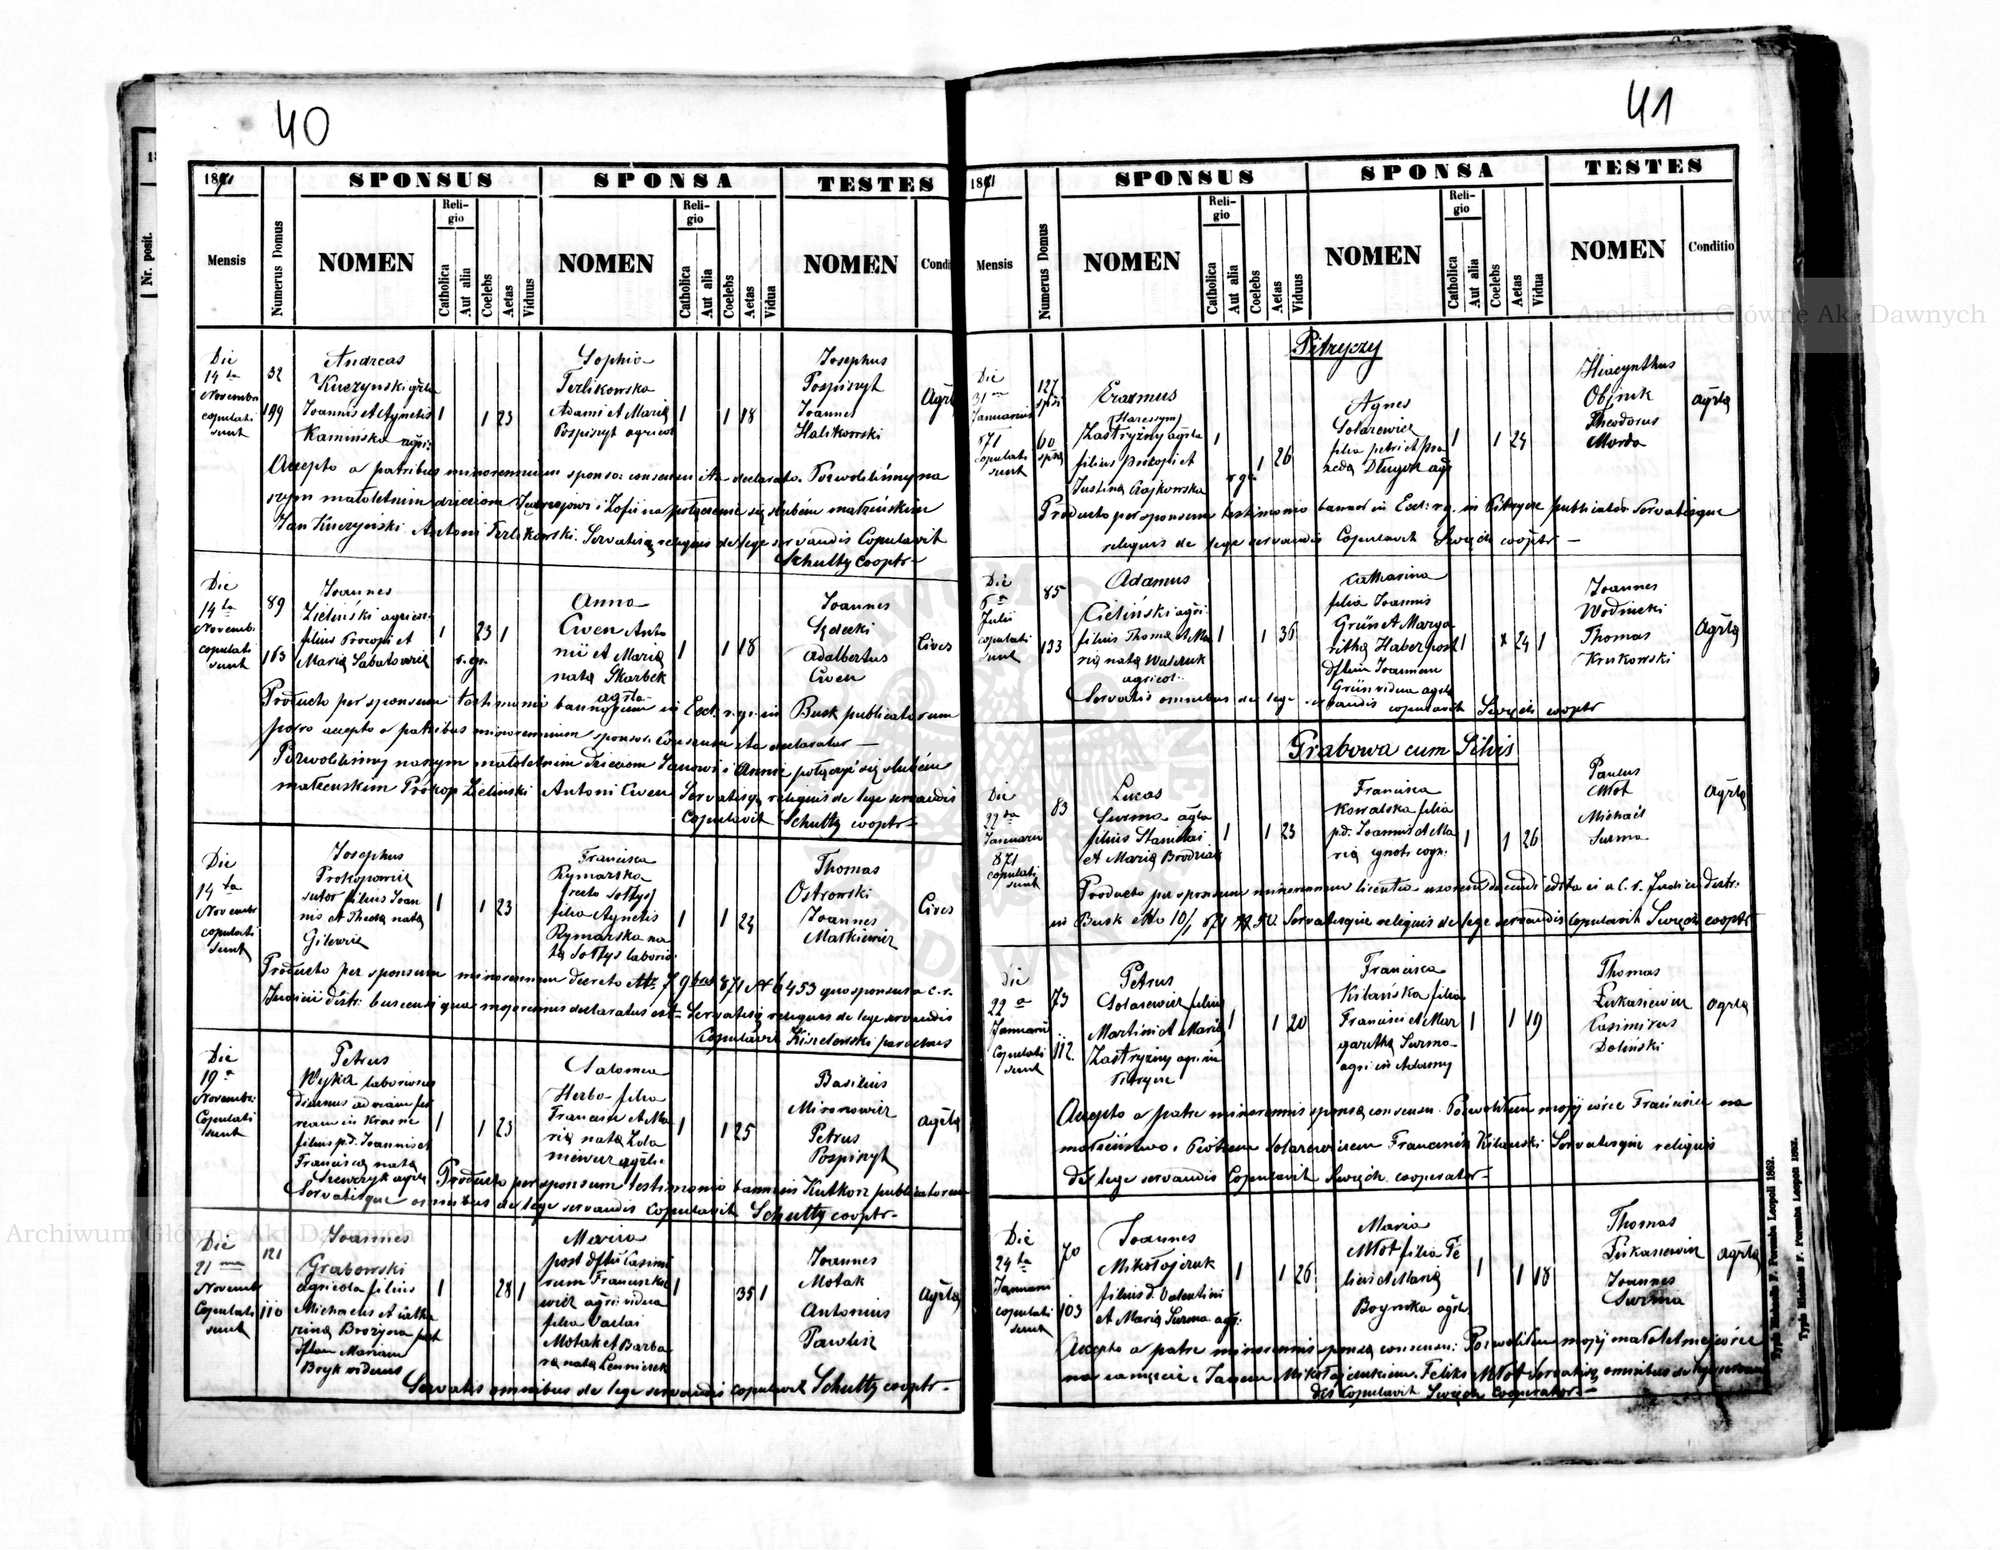 40
1871
SPONSUS
SPONSA
TESTES
Nr. posit.
Mensis
Numerus Domus
NOMEN
Religio
Catholica
Aut alia
Coelebs
Aetas
Viduus
NOMEN
Religio
Catholica
Aut alia
Coelebs
Aetas
Vidua
NOMEN
Condi
Die
14ta
Novembr
copulati
sunt
32
199
Andreas
Kuczynski agrla
Joannis et Agnetis
Kamińska agri:
1
1
23
Sophia
Terlikowska
Adami et Maria
Pospiszyt agricol
1
1
18
Josephus
Pospiszyt
Joannes
Halikowski
Agrla
Accepto a patribus minorennium sponso: consensu ita declarato. Pozwoliliśmy na
szym małoletnim dzieciom Jędrzejowi i Zofii na połączenie się ślubem małżeńskiem
Jan Kuczyński Antoni Terlikowski. Servatisq reliquis de lege servandis Copulavit
Schultz cooptr
Die
14ta
Novemb:
copulati
sunt
89
163
Joannes
Zieliński agricol:
filius Procopi et
Maria Sabatowicz
1
r. gr.
23
1
Anna
Cwen Anto
nii et Maria
nata Skarbek
agrla
1
1
18
Joannes
Sądecki
Adalbertus
Cwen
Cives
Producto per sponsum testimonio bannorum in Eccl. r. gr. in Busk publicatorum
porro accepto a patribus minorennium sponsor. Consensu ita declarator
Pozwoliliśmy naszym małoletnim dzieciom Janowi i Annie połączyć się ślubem
małżenskiem Prokop Zieliński Antoni Cwen Servatisq reliquis de lege servandis
Copulavit Schultz cooptr
Die
14ta
Novembr
copulati
sunt
Josephus
Prokopowicz
sutor filius Joan
nis et Thecla nata
Gilewicz
1
1
23
Francisca
Rymarska
recto Sołtys
filia Agnetis
Rymarska na
ta Sołtys laborio
1
1
24
Thomas
Ostrowski
Joannes
Markiewicz
Cives
Producto per sponsum minorennem decreto dtto 7 9bris 871 N 6453 quo sponsus a c. r.
Judicii distri: buscensi qua majorennis declaratus est Servatisq reliquis de lege servandis
Copulavit Kisielewski parochus
Die
19a
Novembr:
Copulati
sunt
Petrus
Wyka laboriosus
diurnus ad viam fer
ream in Krasne
filius p.d. Joannis et
Francisca nata
Szewczyk agrla
1
1
23
Salomea
Herba filia
Francisci et Ma
ria nata Zola
niewicz agrla
1
1
25
Basilius
Mironowicz
Petrus
Pospiszyt
Agrla
Producto per sponsum testimonio bannor in Kutkorz publicatorum
Servatisque omnibus de lege servandis Copulavit Schultz cooptr
Die
21ma
Novembr
Copulati
sunt
121
110
Joannes
Grabowski
agricola filius
Michaelis et Catha
rina Brozyna post
dftam Mariam
Bryk viduus
1
28
1
Maria
post dftu Casimi
rum Franciszke
wicz agri vidua
filia Vaclai
Motak et Barba
ra nata Lenniczek
1
35
1
Joannes
Motak
Antonius
Pawlik
Agrla
Servatis omnibus de lege servandis copulavit Schultz cooptr
41
1871
SPONSUS
SPONSA
TESTES
Mensis
Numerus Domus
NOMEN
Religio
Catholica
Aut alia
Coelebs
Aetas
Viduus
NOMEN
Religio
Catholica
Aut alia
Coelebs
Aetas
Vidua
NOMEN
Conditio
Pitryczy
Die
31ma
Januarius
871
copulati
sunt
127
spsi
60
spsa
Erasmus
Zastryżny agrla
filius Prokopi et
Justina Czajkowska
1
r. gr.
1
26
Agnes
Solarewicz
filia Petri et
Długosz agr
1
1
24
Hiacynthus
Objnik
Theodorus
Morda
Agrla
Producto per sponsum testimonio bannor in Eccl: r. g. in Pitrycze publicator Servatisque
reliquis de lege servandis Copulavit Święch cooptr
Die
6a
Julii
copulati
sunt
85
133
Adamus
Cieliński agri:
filius Thoma et Ma
ria nata Walczuk
agricol:
1
1
36
Catharina
filia Joannis
Grün et Marga
ritha Haber post
dftum Joannem
Grün vidua agrla
1
24
1
Joannes
Wodnicki
Thomas
Krukowski
Agrla
Servatis omnibus de lege servandis copulavit Święch cooptr
Grabowa cum Silvis
Die
22da
Januarii
871
copulati
sunt
83
Lucas
Surma agla
filius Stanislai
et Maria Brodziak
1
1
23
Francisca
Kowalska filia
p.d. Joannis et Ma
ria ignoti cogn.
1
1
26
Paulus
Młot
Michaël
Surma
Agrla
Producto per sponsum minorennem licentia uxorem ducendi edita ei a C. r. Judicii distri:
in Busk dtto 10/1 871 N 50. Servatisque reliquis de lege servandis Copulavit Święch cooptr
Die
22a
Januarii
Copulati
sunt
73
112
Petrus
Solarewicz filius
Martini et Maria
Zastryżny agri in
Pitrycze
1
1
20
Francisca
Kilańska filia
Francisci et Mar
garetha Surma
agri in Adamy
1
1
19
Thomas
Łukasiewicz
Casimirus
Doliński
Agrla
Accepto a patre minorennis sponsa consensu. Pozwoliłem mojij córce Franciszce na
małżeństwo z Piotrem Solarewiczem Franciszek Kilanski Servatisque reliquis
de lege servandis Copulavit Święch. cooperator
Die
24ta
Januarii
copulati
sunt
70
103
Joannes
Mikołajczuk
filius d. Valentini
et Maria Surma agr:
1
1
26
Maria
Młot filia Fe
licis et Maria
Boynska agrla
1
1
18
Thomas
Łukasiewicz
Joannes
Surma
Agrla
Accepto a patre minorennis sponsa consensu: Pozwoliłem mojij małoletniej córce
na zamęście z Janem Mikołajczukiem. Feliks Młot Servatisq omnibus de lege servan
dis Copulavit Święch Cooperator
Typis Michaelis F. Poremba Leopoli 1862.
Typis Michaelis F. Poremba Leopoli 1862.
Archiwum Główne Akt Dawnych
Archiwum Główne Akt Dawnych